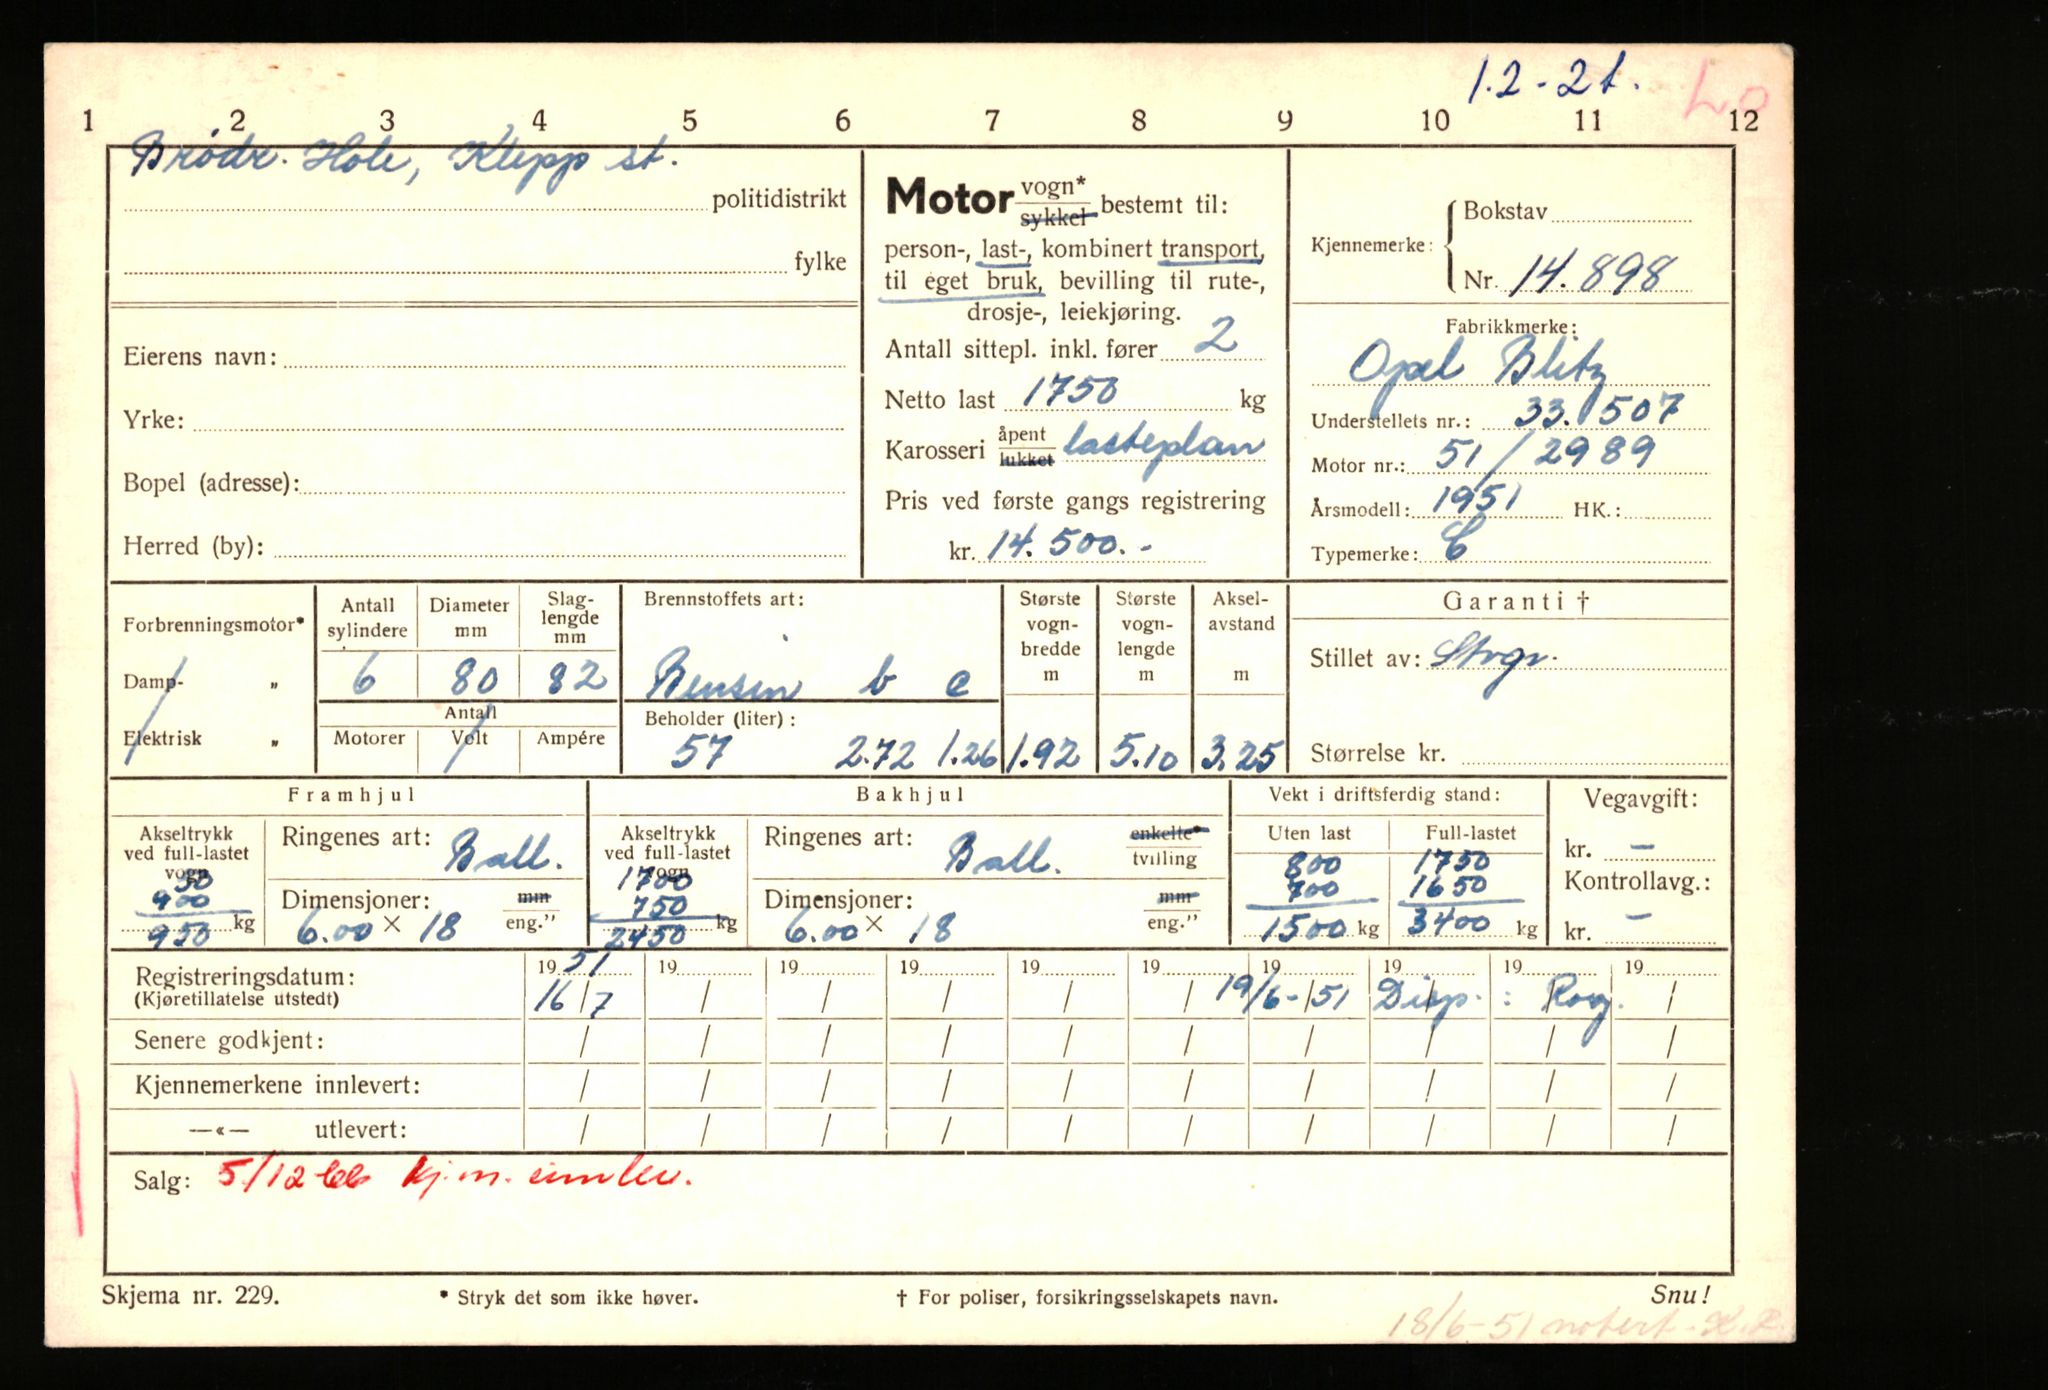 1.2-2t. Lo
1 2 3 4 5 6 7 8 9 10 11 12
Brödr. Hole, Klepp st.
politidistrikt
fylke
Eierens navn:
Yrke:
Bopel (adresse):
Herred (by):
Motor vogn* sykkel bestemt til:
person-, last-, kombinert transport,
til eget bruk, bevilling til rute-,
drosje-, leiekjøring.
Antall sittepl. inkl. fører 2
Netto last 1750 kg
Karosseri åpent lukket lasteplan
Pris ved første gangs registrering
kr. 14.500.-
Kjennemerke: Bokstav
Nr. 14.898
Fabrikkmerke:
Opel Blitz
Understellets nr.: 33.507
Motor nr.: 51/2989
Årsmodell: 1951 HK.:
Typemerke: C
Forbrenningsmotor*
Damp- „
Elektrisk „
Antall sylindere
Diameter mm
Slag-lengde mm
6 80 82
Antall
Motorer Volt Ampére
Brennstoffets art:
Bensin b c
Beholder (liter):
57 2.72 1.26
Største vogn-bredde m
1.92
Største vogn-lengde m
5.10
Aksel-avstand m
3.25
Garanti †
Stillet av: Storgr.
Størrelse kr.
Framhjul
Akseltrykk ved full-lastet vogn
50
900
950 kg
Ringenes art: Ball.
Dimensjoner: mm eng."
6.00 × 18
Bakhjul
Akseltrykk ved full-lastet vogn
1700
750
2450 kg
Ringenes art: Ball. enkelte* tvilling
Dimensjoner: mm eng."
6.00 × 18
Vekt i driftsferdig stand:
Uten last Full-lastet
800 1750
700 1650
1500 kg 3400 kg
Vegavgift:
kr. –
Kontrollavg.:
kr. –
Registreringsdatum: 19 51 19 19 19 19 19 19 19 19 19
(Kjøretillatelse utstedt) 16/7 / / / / / 19/6-51 Disp.: Rog.
Senere godkjent: / / / / / / / / / /
Kjennemerkene innlevert: / / / / / / / / / /
—«— utlevert: / / / / / / / / / /
Salg: 5/12 66 kj.m. innlev.
Skjema nr. 229. * Stryk det som ikke høver. † For poliser, forsikringsselskapets navn. Snu!
18/6-51 notert. K.R.